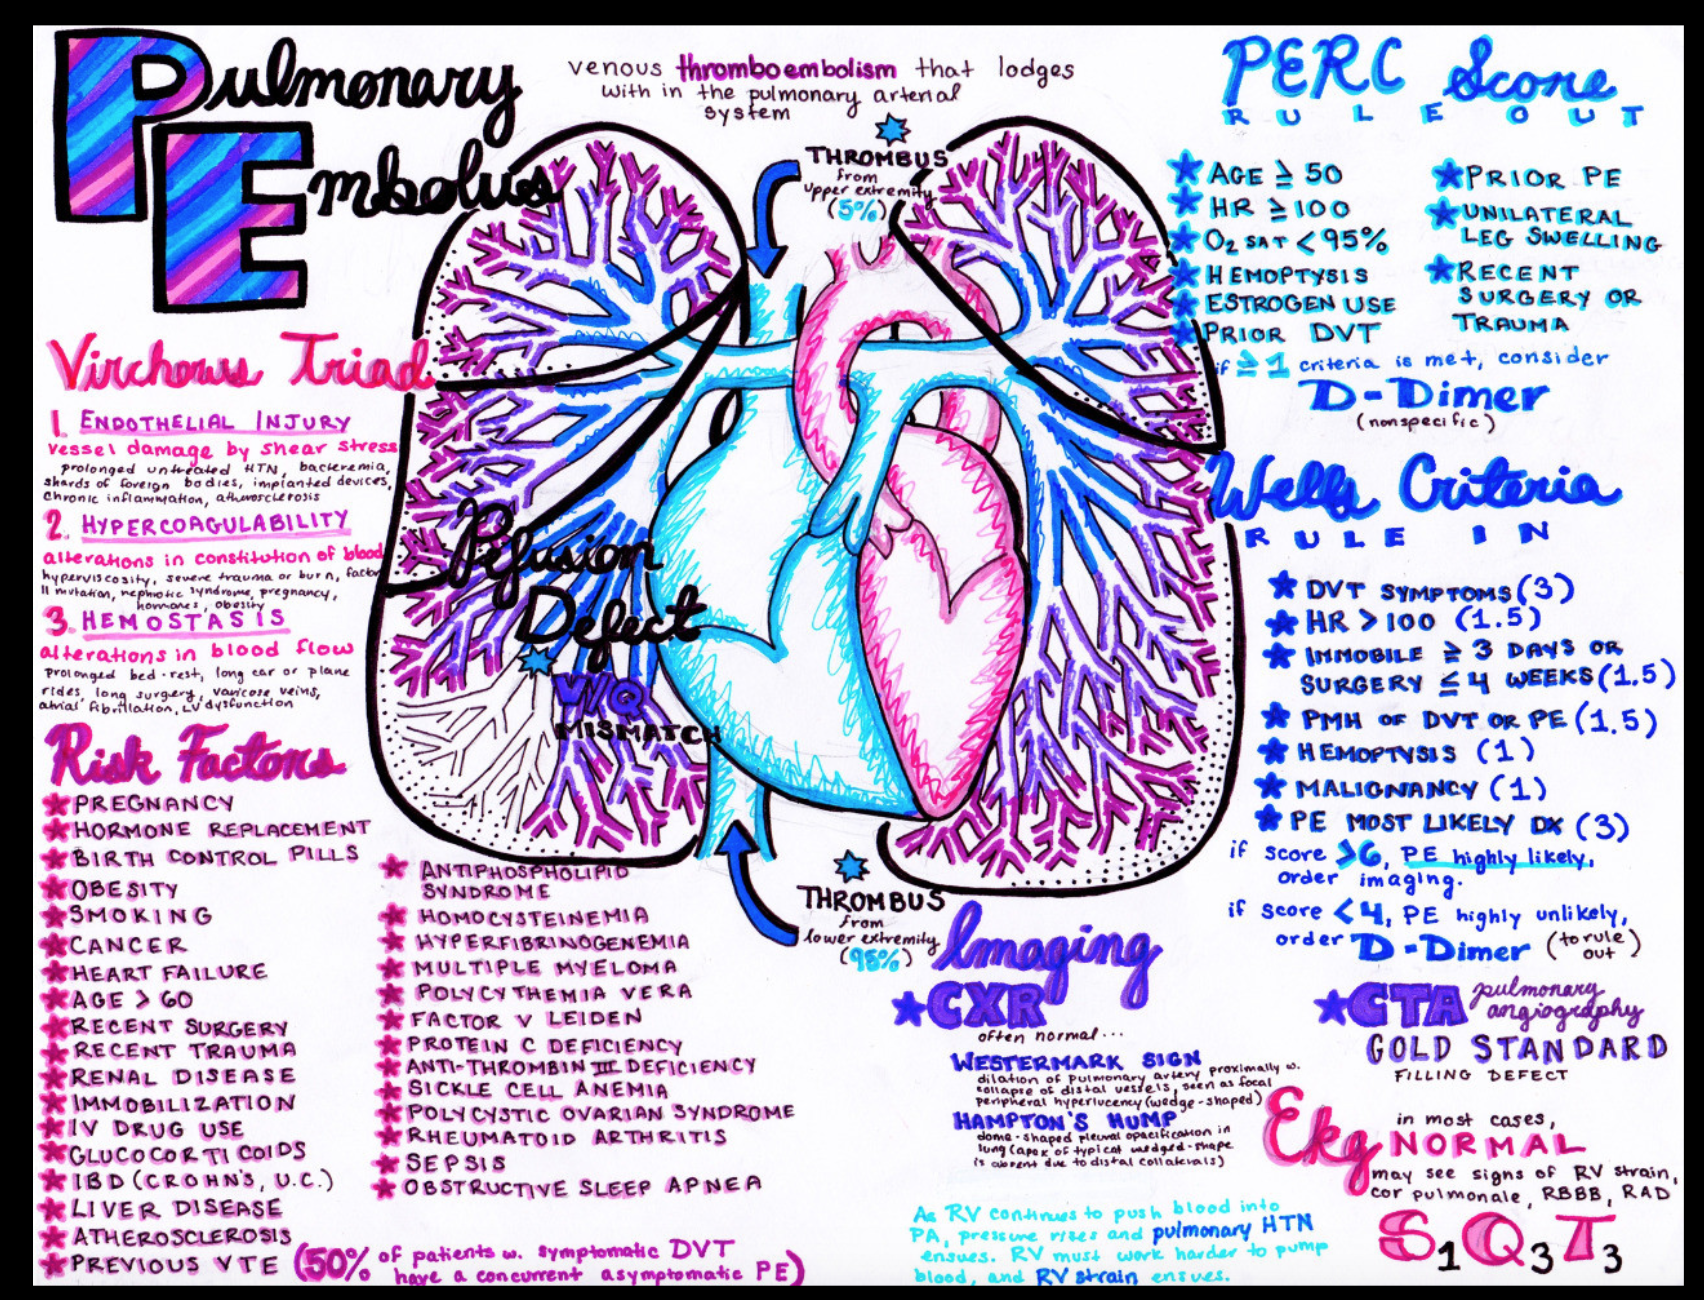 Pulmonary
Embolus
venous thromboembolism that lodges
with in the pulmonary arterial
system
THROMBUS
from
upper extremity
(5%)
Virchows Triad
1. ENDOTHELIAL INJURY
vessel damage by shear stress
prolonged untreated HTN, bacteremia,
shards of foreign bodies, implanted devices,
chronic inflammation, atherosclerosis
2. HYPERCOAGULABILITY
alterations in constitution of blood
hyperviscosity, severe trauma or burn, factor
II mutation, nephrotic syndrome, pregnancy,
hormones, obesity
3. HEMOSTASIS
alterations in blood flow
prolonged bed-rest, long car or plane
rides, long surgery, varicose veins,
atrial fibrillation, LV dysfunction
Risk Factors
PREGNANCY
HORMONE REPLACEMENT
BIRTH CONTROL PILLS
OBESITY
SMOKING
CANCER
HEART FAILURE
AGE > 60
RECENT SURGERY
RECENT TRAUMA
RENAL DISEASE
IMMOBILIZATION
IV DRUG USE
GLUCOCORTICOIDS
IBD (CROHN'S, U.C.)
LIVER DISEASE
ATHEROSCLEROSIS
PREVIOUS VTE (50% of patients w. symptomatic DVT
have a concurrent asymptomatic PE)
ANTIPHOSPHOLIPID
SYNDROME
HOMOCYSTEINEMIA
HYPERFIBRINOGENEMIA
MULTIPLE MYELOMA
POLYCYTHEMIA VERA
FACTOR V LEIDEN
PROTEIN C DEFICIENCY
ANTI-THROMBIN III DEFICIENCY
SICKLE CELL ANEMIA
POLYCYSTIC OVARIAN SYNDROME
RHEUMATOID ARTHRITIS
SEPSIS
OBSTRUCTIVE SLEEP APNEA
Pefusion
Defect
V/Q
MISMATCH
THROMBUS
from
lower extremity
(95%)
PERC Score
RULE OUT
AGE ≥ 50
HR ≥ 100
O2 SAT < 95%
HEMOPTYSIS
ESTROGEN USE
PRIOR DVT
PRIOR PE
UNILATERAL
LEG SWELLING
RECENT
SURGERY OR
TRAUMA
if ≥ 1 criteria is met, consider
D-Dimer
(nonspecific)
Wells Criteria
RULE IN
DVT SYMPTOMS (3)
HR > 100 (1.5)
IMMOBILE ≥ 3 DAYS OR
SURGERY ≤ 4 WEEKS (1.5)
PMH OF DVT OR PE (1.5)
HEMOPTYSIS (1)
MALIGNANCY (1)
PE MOST LIKELY DX (3)
if score >6, PE highly likely,
order imaging.
if score <4, PE highly unlikely,
order D-Dimer (to rule out)
Imaging
CXR
often normal...
WESTERMARK SIGN
dilation of pulmonary artery proximally w.
collapse of distal vessels, seen as focal
peripheral hyperlucency (wedge-shaped)
HAMPTON'S HUMP
dome-shaped pleural opacification in
lung (apex of typical wedged-shape
is absent due to distal collaterals)
CTA pulmonary
angiography
GOLD STANDARD
FILLING DEFECT
Ekg
in most cases,
NORMAL
may see signs of RV strain,
cor pulmonale, RBBB, RAD
S1Q3T3
As RV continues to push blood into
PA, pressure rises and pulmonary HTN
ensues. RV must work harder to pump
blood, and RV strain ensues.